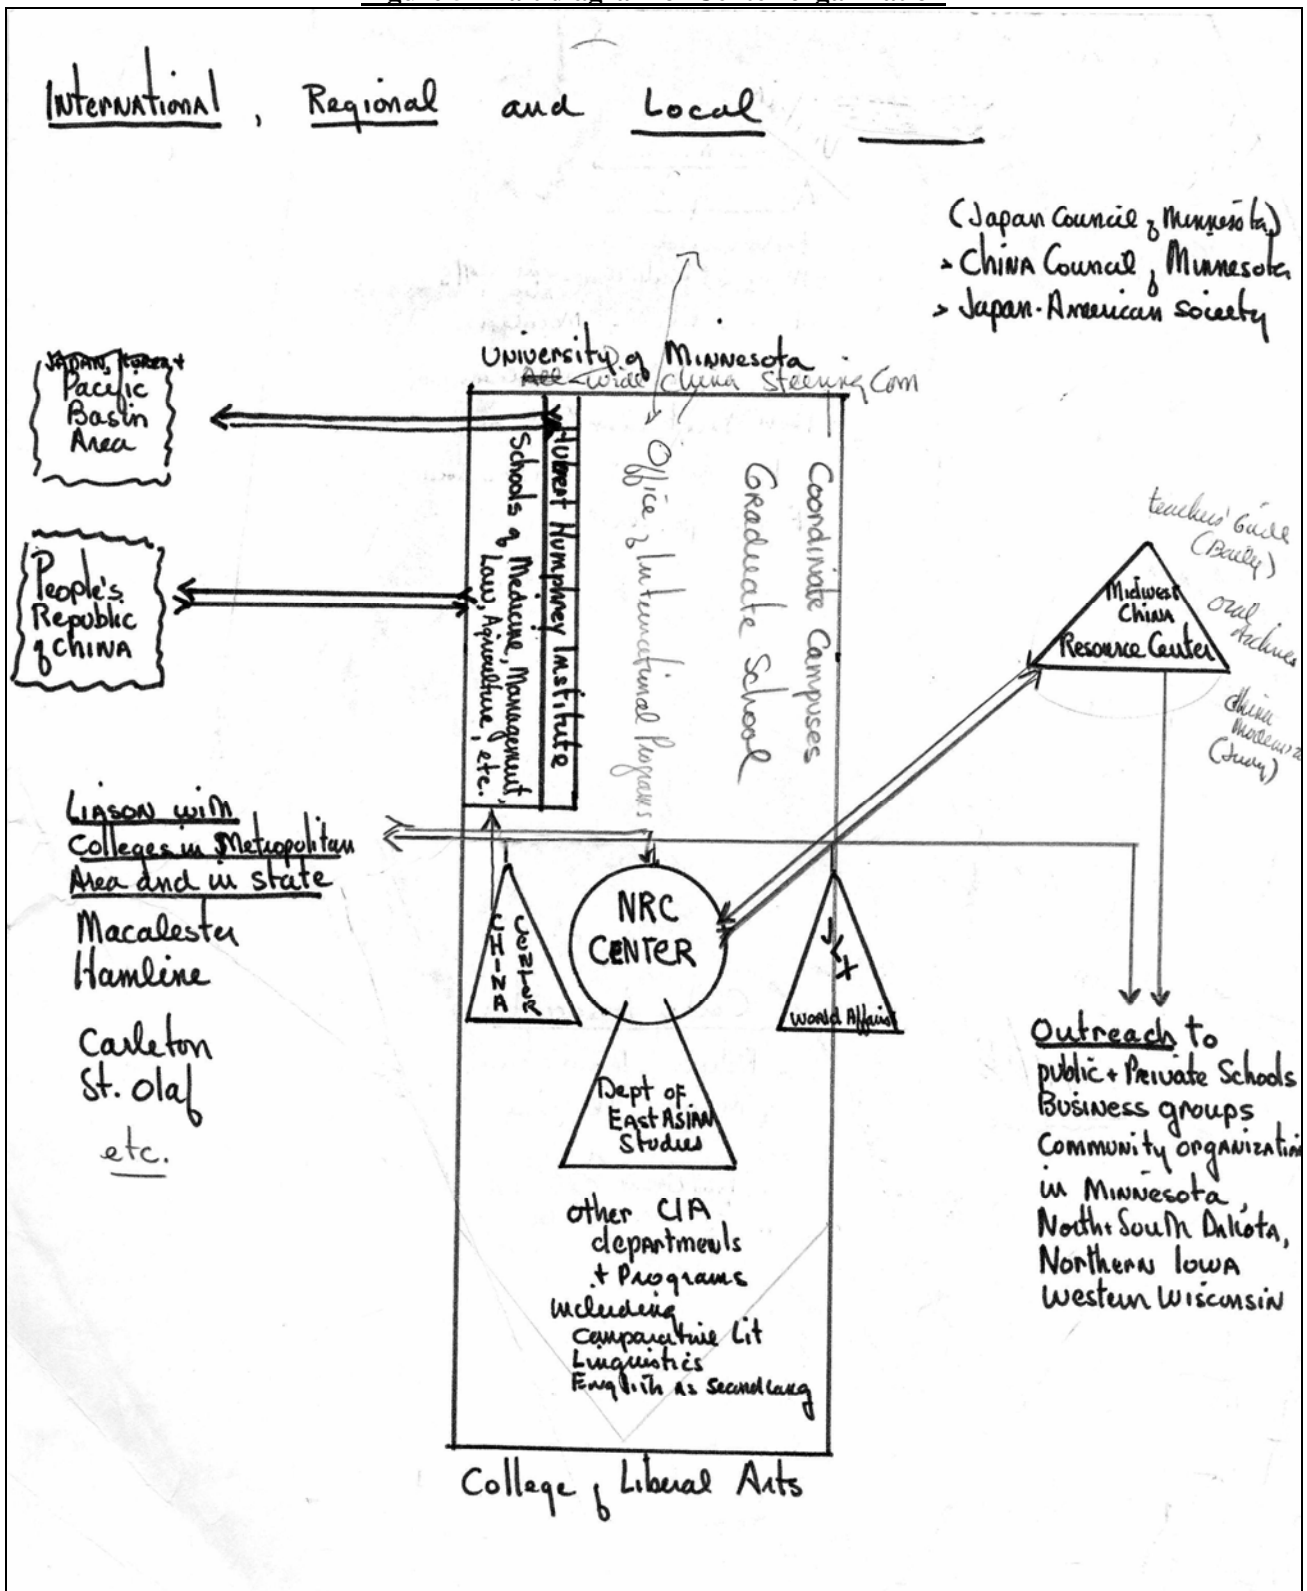 International, Regional and Local
(Japan Council of Minnesota)
> China Council of Minnesota
> Japan-American Society
University of Minnesota
All-wide China Steering Com
Japan, Korea +
Pacific
Basin
Area
People's
Republic
of China
Schools of Medicine, Management,
Law, Agriculture, etc.
Hubert Humphrey Institute
Office of International Programs
Graduate School
Coordinate Campuses
teachers' Guide
(Baily)
oral
Archives
China
(Judy)
Midwest
China
Resource Center
Liason with
Colleges in Metropolitan
Area and in state
Macalester
Hamline
Carleton
St. Olaf
etc.
China
Center
NRC
Center
World Affairs
Dept of
East Asian
Studies
other CLA
departments
+ Programs
including
Comparative Lit
Linguistics
English as Second Lang
College of Liberal Arts
Outreach to
public + Private Schools
Business groups
Community organization
in Minnesota,
North + South Dakota,
Northern Iowa
Western Wisconsin